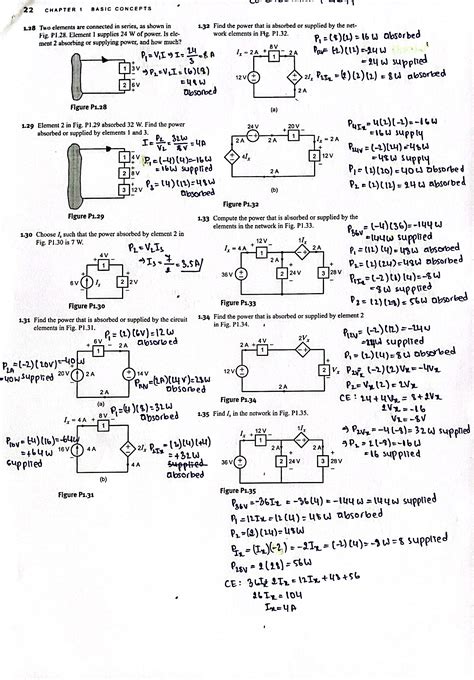 22 CHAPTER 1 BASIC CONCEPTS
1.28 Two elements are connected in series, as shown in
Fig. P1.28. Element 1 supplies 24 W of power. Is ele-
ment 2 absorbing or supplying power, and how much?
P₁=V₁I ⇒ I = 24/3 = 8A
⇒ P₂=V₂I=(6)(8)
= 48W
absorbed
1 3V
2 6V
Figure P1.28
1.29 Element 2 in Fig. P1.29 absorbed 32 W. Find the power
absorbed or supplied by elements 1 and 3.
I = P₂/V₂ = 32W/8V = 4A
P₁=(-4)(4)=-16W
=16W supplied
P₃=(4)(12)=48W
absorbed
1 4V
2 8V
3 12V
Figure P1.29
1.30 Choose Iₛ such that the power absorbed by element 2 in
Fig. P1.30 is 7 W.
P₂=V₂Iₛ
⇒Iₛ = 7/2 = 3.5A
4V
1
6V Iₛ 2 2V
Figure P1.30
1.31 Find the power that is absorbed or supplied by the circuit
elements in Fig. P1.31.
P₁=(2)(6V)=12W
absorbed
P₂A=(-2)(20V)=-40W
=40W supplied
6V 2A
1
20V 2A 14V
2A
(a)
P₁=(4)(8)=32W
absorbed
Iₓ = 4A 8V
1
16V 4A 2Iₓ
4A
(b)
supplied
+32W
absorbed
Figure P1.31
1.32 Find the power that is absorbed or supplied by the net-
work elements in Fig. P1.32.
P₁=(8)(2)=16W absorbed
=24W supplied
P₂Iₓ=(2)(2)(2)=8W absorbed
Iₓ = 2A 8V
1
12V 2Iₓ
2A
(a)
24V 20V
1
Iₓ = 2A
2A
4Iₓ 2 12V
2A
(b)
P₄Iₓ=4(2)(-2)=-16W
=16W supply
P₂₄V=(-2)(24)=-48W
=48W supply
P₁=(2)(20)=40W absorbed
P₂=(2)(12)=24W absorbed
Figure P1.32
1.33 Compute the power that is absorbed or supplied by the
elements in the network in Fig. P1.33.
P₃₆V=(-4)(36)=-144W
=144W supplied
P₁=(12)(4)=48W absorbed
P₂=(2)(24)=48W absorbed
P₁Iₓ=(-2)(1)(4)=-8W
=8W supplied
P₃=(2)(28)=56W absorbed
Iₓ = 4A 12V 1Iₓ 2A
1
36V 2 24V 3 28V
2A
Figure P1.33
1.34 Find the power that is absorbed or supplied by element 2
in Fig. P1.34.
P₁₂V=(-2)(12)=-24W
=24W supplied
P₁=(2)(4)=8W absorbed
P₂Vₓ=(-2)(2)Vₓ=-4Vₓ
P₂=Vₓ(2)=2Vₓ
CE: 24+4Vₓ=8+2Vₓ
2Vₓ=-16
Vₓ=-8V
⇒P₂Vₓ=-4(-8)=32W supplied
⇒P₂=2(-8)=-16W
=16 supplied
2A 4V 2Vₓ
1
12V 2 Vₓ
2A
Figure P1.34
1.35 Find Iₓ in the network in Fig. P1.35.
Iₓ 12V 1Iₓ 2A
1
36V 2 24V 3 28V
2A
Figure P1.35
P₃₆V=-36Iₓ=-36(4)=-144W=144W supplied
P₁=12Iₓ=12(4)=48W absorbed
P₂=(2)(24)=48W
PIₓ=(Iₓ)(-2)=-2Iₓ=(-2)(4)=-8W=8 supplied
P₂₈V=2(28)=56W
CE: 36Iₓ+2Iₓ=12Iₓ+48+56
26Iₓ=104
Iₓ=4A